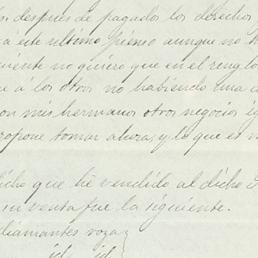 despues de pagados los derechos
á este ultimo premio aunque no
quiero que en el renglo
e á los otros no habiendo una c
on mis hermanos otros negocios ig
ropone tomar ahora, y lo que es m
dicho que he vendido al dicho
su venta fue la siguiente.
diamantes rozas
id id